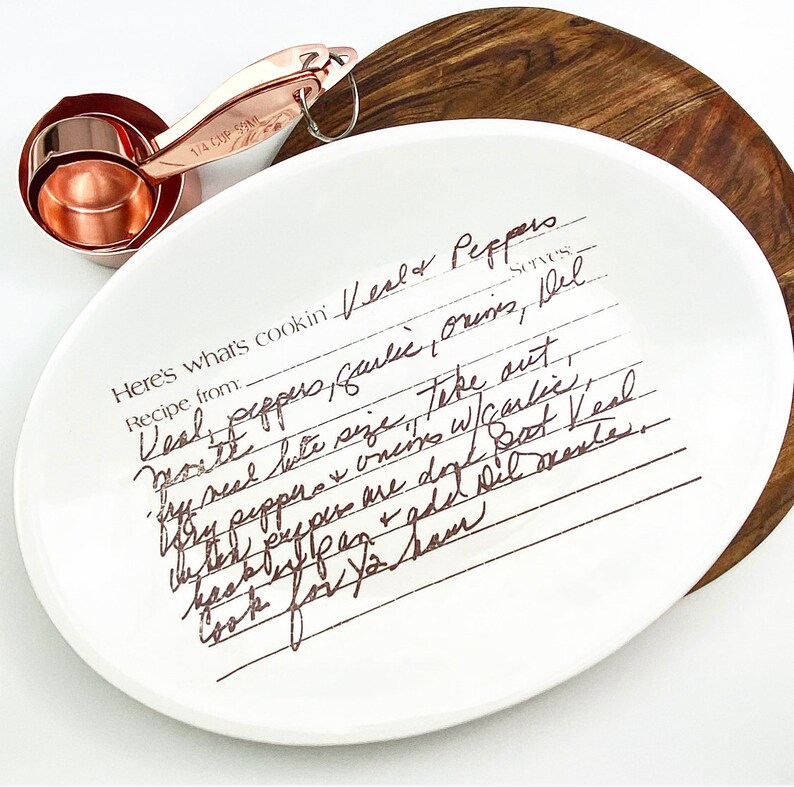 1/4 CUP 59ML
Here's what's cookin' Veal & Peppers
Serves:
Recipe from:
Veal, peppers, garlic, onions, Del
Monte
fry veal bite size, Take out,
fry peppers & onions w/garlic,
when peppers are done put Veal
back in pan & add Del Monte.
Cook for 1/2 hour